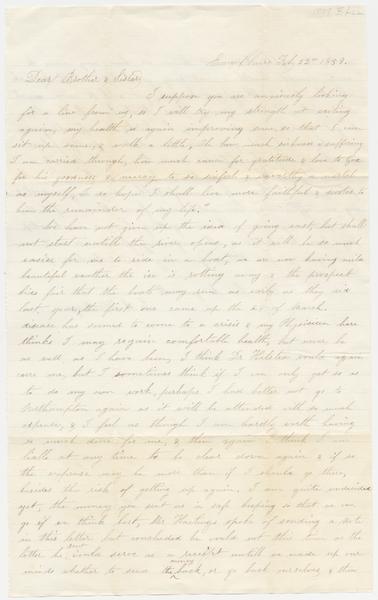 Feb. 22nd 1858.
Dear Brother & Sister,
I suppose you are anxiously looking
for a line from us, so I will try my strength at writing
again, my health is again improving some, so that I can
sit up some, & walk a little, Oh how much sickness & suffering
I am carried through, how much cause for gratitude & love to God
for his goodness & mercy to so sinful & a wretch
as myself, I do hope I shall live more faithful &
to him the remainder of my life.
We have not given up the idea of going east, but shall
not start untill the river opens, as it will be so much
easier for me to ride in a boat, we are now having mild
beautiful weather the ice is rotting away & the prospect
bids fair that the boats may run as early as they did
last year, the first one came up the of March.
disease has seemed to come to a crisis & my Physician here
thinks I may regain comfortable health, but never be
as well as I have been, I think Dr would again
cure me, but I sometimes think if I can only get so as
to do my own work, perhaps I had better not go to
Northampton again as it will be attended with so much
expense, & I feel as though I am hardly worth having
so much done for me, & then again I think I am
liable at any time to be clear down again & if so
the expense may be more than if I should go there,
besides the risk of getting up again, I am quite undecided
yet, the money you sent us is safe keeping so that we can
go if we think best, Mr Hastings spoke of sending a note
in this letter but concluded he would not this time as the
letter he sent would serve as a receipt untill we made up our
minds whether to send the money back, or go back ourselves, & then